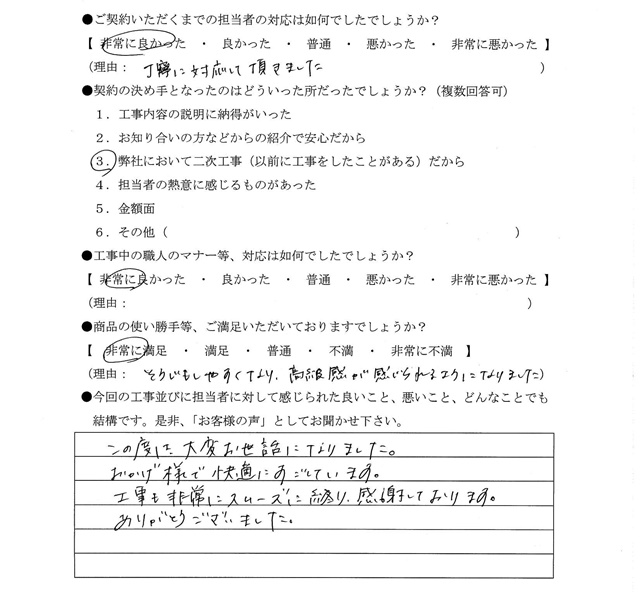 ●ご契約いただくまでの担当者の対応は如何でしたでしょうか？
【 非常に良かった ・ 良かった ・ 普通 ・ 悪かった ・ 非常に悪かった 】
（理由： 丁寧に対応して頂きました ）
●契約の決め手となったのはどういった所だったでしょうか？（複数回答可）
１．工事内容の説明に納得がいった
２．お知り合いの方などからの紹介で安心だから
３．弊社において二次工事（以前に工事をしたことがある）だから
４．担当者の熱意に感じるものがあった
５．金額面
６．その他（ ）
●工事中の職人のマナー等、対応は如何でしたでしょうか？
【 非常に良かった ・ 良かった ・ 普通 ・ 悪かった ・ 非常に悪かった 】
（理由： ）
●商品の使い勝手等、ご満足いただいておりますでしょうか？
【 非常に満足 ・ 満足 ・ 普通 ・ 不満 ・ 非常に不満 】
（理由： そうじもしやすくなり、高級感が感じられるようになりました）
●今回の工事並びに担当者に対して感じられた良いこと、悪いこと、どんなことでも
結構です。是非、「お客様の声」としてお聞かせ下さい。
この度は大変お世話になりました。
おかげ様で快適にすごしています。
工事も非常にスムーズに終り、感謝しております。
ありがとうございました。